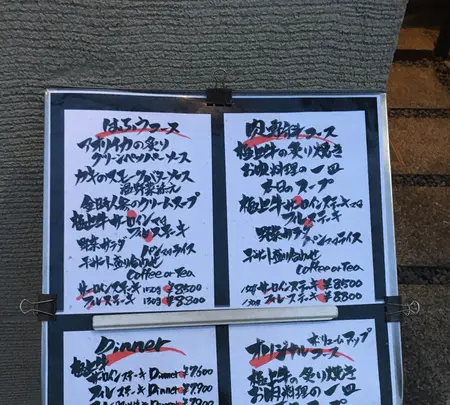 はふうコース
アオリイカの炙り
グリーンペッパーソース
カキのスモークバターソース
温野菜添え
金時人参のクリームスープ
極上牛サーロインor
フィレステーキ
野菜サラダ
パンorライス
デザート盛り合わせ
Coffee or Tea
サーロインステーキ150g ¥8500
フィレステーキ130g ¥8800
肉料理コース
極上牛の炙り焼き
お肉料理の一皿
本日のスープ
極上牛サーロインステーキor
フィレステーキ
野菜サラダ
パンorライス
デザート盛り合わせ
Coffee or Tea
サーロインステーキ ¥8500
130g フィレステーキ ¥8800
Dinner
極上牛
サーロインステーキ Dinner ¥7600
フィレステーキ Dinner ¥7900
オリジナルコース
ボリュームアップ
極上牛の炙り焼き
お肉料理の一皿